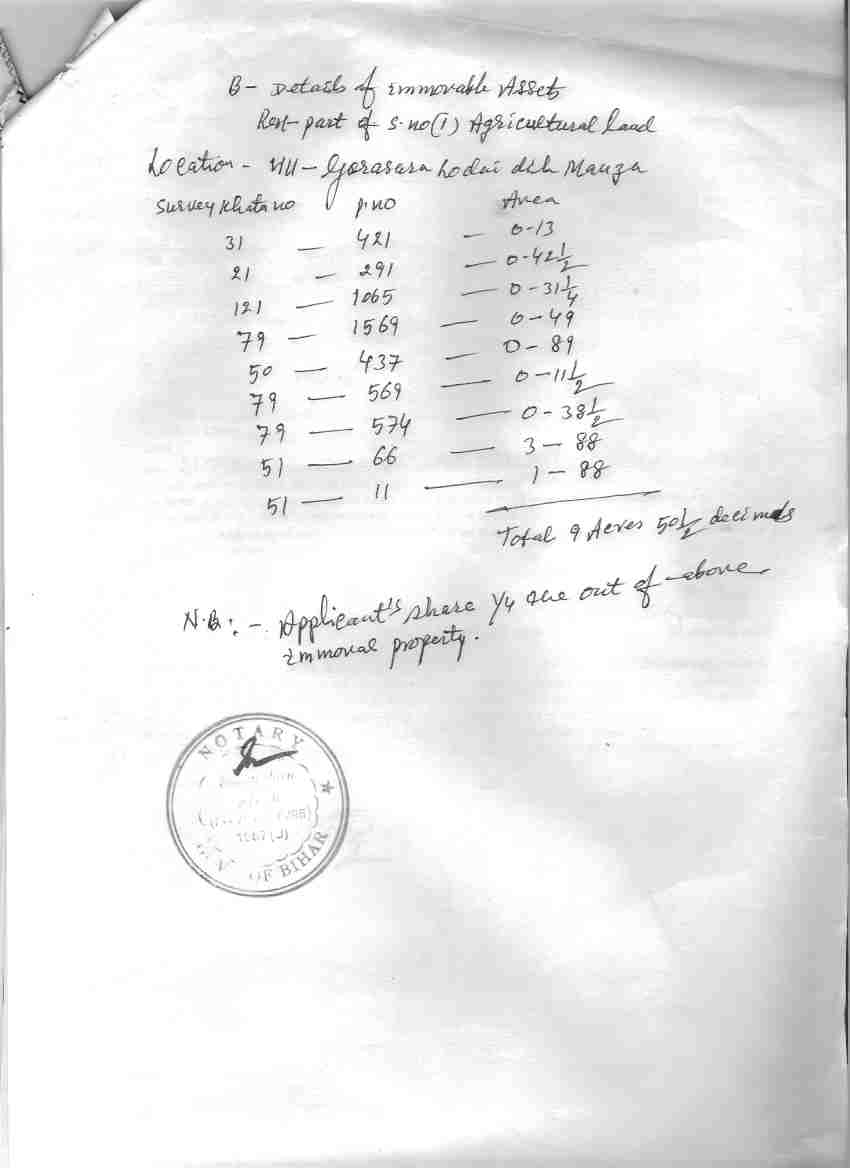 B - Details of Immovable Assets
Rest part of S.no(I) Agricultural Land
Location - Vill - Gorasara Lodai dih Mauza
Survey Khata no P.no Area
31 — 421 — 0-13
21 — 291 — 0-42 1/2
121 — 1065 — 0-31 1/4
79 — 1569 — 0-49
50 — 437 — 0-89
79 — 569 — 0-11 1/2
79 — 574 — 0-38 1/2
51 — 66 — 3-88
51 — 11 — 1-88
Total 9 Acres 50 1/2 decimals
N.B: - Applicant's share 1/4 the out of above
Immoval property.
NOTARY
OF BIHAR